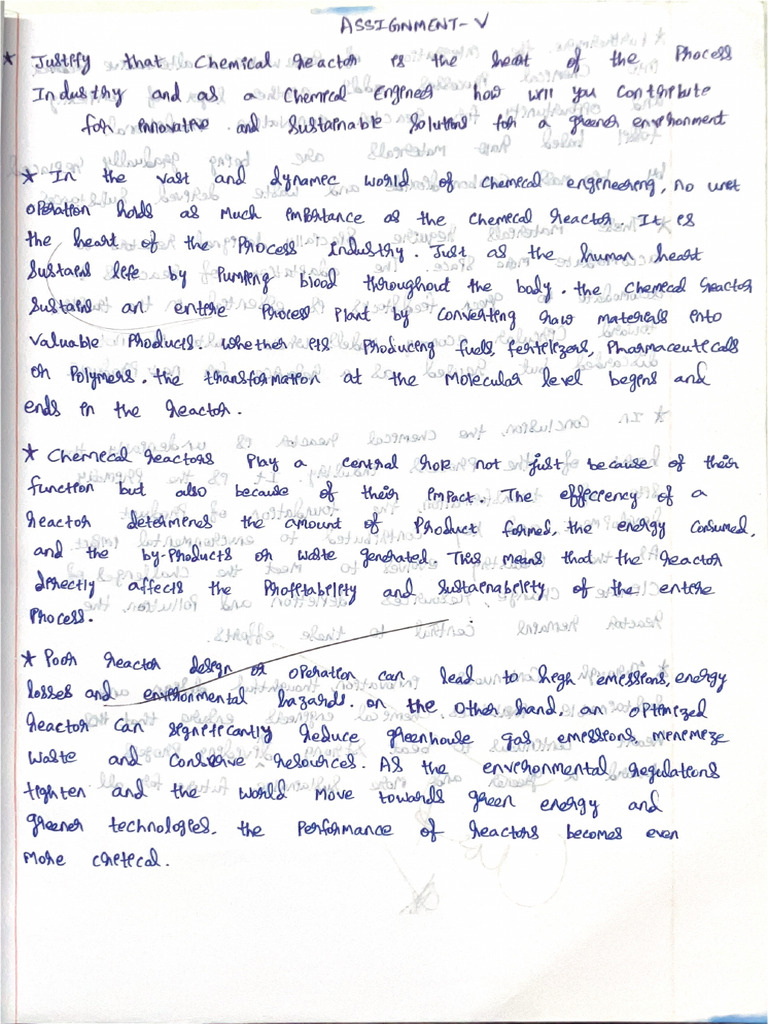 ASSIGNMENT-V
* Justify that Chemical reactor is the heart of the Process
Industry and as a Chemical Engineer how will you contribute
for innovative and Sustainable Solutions for a greener environment
* In the vast and dynamic world of chemical engineering, no unit
operation holds as much importance as the chemical reactor. It is
the heart of the Process industry. Just as the human heart
sustains life by Pumping blood throughout the body. the chemical reactor
sustains an entire Process Plant by converting raw materials into
valuable Products. whether its Producing fuels, fertilizers, Pharmaceuticals
or Polymers. the transformation at the Molecular level begins and
ends in the reactor.
* Chemical reactors Play a central role not just because of their
function but also because of their impact. The efficiency of a
reactor determines the amount of Product formed, the energy consumed,
and the by-Products or waste generated. This means that the reactor
directly affects the Profitability and sustainability of the entire
Process.
* Poor reactor design or operation can lead to high emissions, energy
losses and environmental hazards. on the Other hand, an optimized
reactor can significantly reduce greenhouse gas emissions, minimize
waste and Conserve resources. As the environmental regulations
tighten and the world move towards green energy and
greener technologies. the Performance of reactors becomes even
More critical.